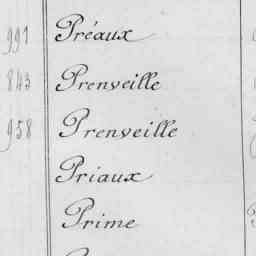 991 Préaux
843 Prenveille
958 Prenveille
Priaux
Prime